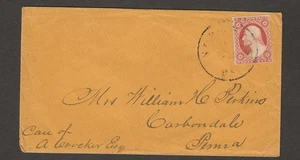 Mrs William H. Perkins
Carbondale
Penna
Care of
A Worcker Esq